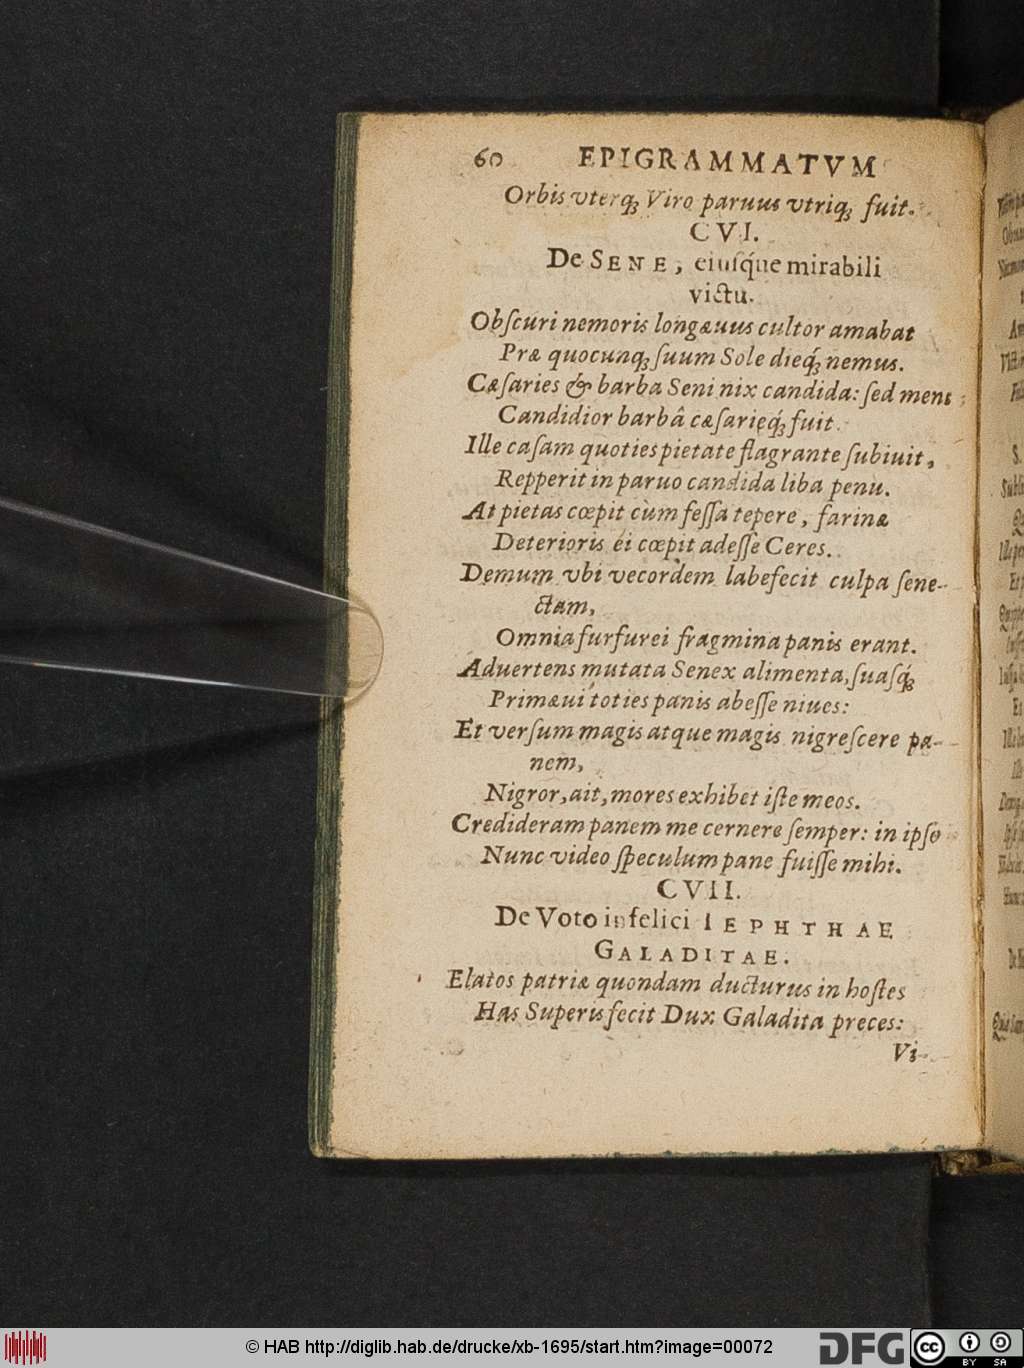 60 EPIGRAMMATVM
Orbis vterqꝫ Viro paruus vtriqꝫ fuit.
CVI.
De SENE, eiusq́ue mirabili
victu.
Obſcuri nemoris longæuus cultor amabat
Præ quocunqꝫ ſuum Sole dieq́ꝫ nemus.
Cæſaries & barba Seni nix candida: ſed mens
Candidior barbâ cæſarieq́ꝫ fuit.
Ille caſam quoties pietate flagrante ſubiuit,
Repperit in paruo candida liba penu.
At pietas cœpit cùm feſſa tepere, farinæ
Deterioris éi cœpit adeſſe Ceres.
Demum vbi vecordem labefecit culpa ſene-
ctam,
Omnia furfurei fragmina panis erant.
Aduertens mutata Senex alimenta, ſuasq́ꝫ
Primæui toties panis abeſſe niues:
Et verſum magis atque magis nigreſcere pa-
nem,
Nigror, ait, mores exhibet iſte meos.
Credideram panem me cernere ſemper: in ipſo
Nunc video ſpeculum pane fuiſſe mihi.
CVII.
De Voto infelici IEPHTHAE
GALADITAE.
Elatos patriæ quondam ducturus in hoſtes
Has Superis fecit Dux Galadita preces:
Vi-
© HAB http://diglib.hab.de/drucke/xb-1695/start.htm?image=00072
DFG
cc BY SA